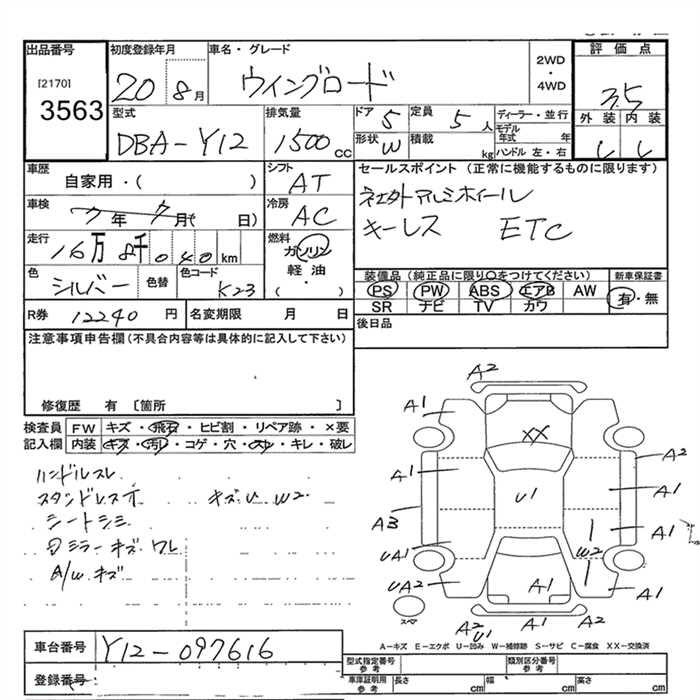 出品番号 初度登録年月 車名・グレード 2WD ・ 4WD 評価点
[2170]
3563
20 8月 ウイングロード 3.5
型式 排気量 ドア 5 定員 5人 ディーラー・並行 外装 内装
DBA-Y12 1500cc 形状 W 積載 kg モデル年式 年 ハンドル 左・右
車歴 シフト セールスポイント (正常に機能するものに限ります)
自家用・( ) AT 社外アルミホイール
車検 冷房 キーレス ETC
年 月( 日) AC
走行 燃料
16万8千040km ガソリン
軽油・( )
色 色替 色コード
シルバー K23
装備品(純正品に限り○をつけてください) 新車保証書
PS PW ABS エアB AW 有・無
SR ナビ TV カワ
R券 12240円 名変期限 月 日 後日品
注意事項申告欄(不具合内容等は具体的に記入して下さい)
修復歴 有〔箇所 〕
検査員 FW キズ・飛石・ヒビ割・リペア跡・×要
記入欄 内装 キズ・汚れ・コゲ・穴・スレ・キレ・破レ
ハンドルスレ
キズU W2
シートシミ
ミラーキズ ワレ
A/W キズ
A2
A1
XX
A1 A2
U1 A1
A3 A1
UA1 W2
UA2 A1 A1
スペア
A2 U1 A1
A-キズ E-エクボ U-凹み W-補修跡 S-サビ C-腐食 XX-交換済
車台番号 Y12-097616
型式指定番号 参考 類別区分番号 参考
登録番号 車庫証明用 参考 長さ cm 幅 cm 高さ cm